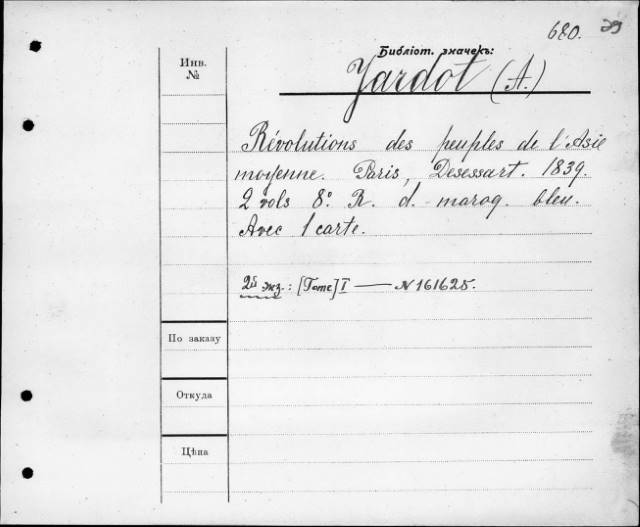 680. 29
Библіот. значекъ:
Инв.
№
Jardot (A.)
Révolutions des peuples de l'Asie
moyenne. Paris, Desessart. 1839.
2 vols 8° R. d. maroq. bleu.
Avec 1 carte.
2й экз.: [Tome] I — N 161625.
По заказу
Откуда
Цѣна